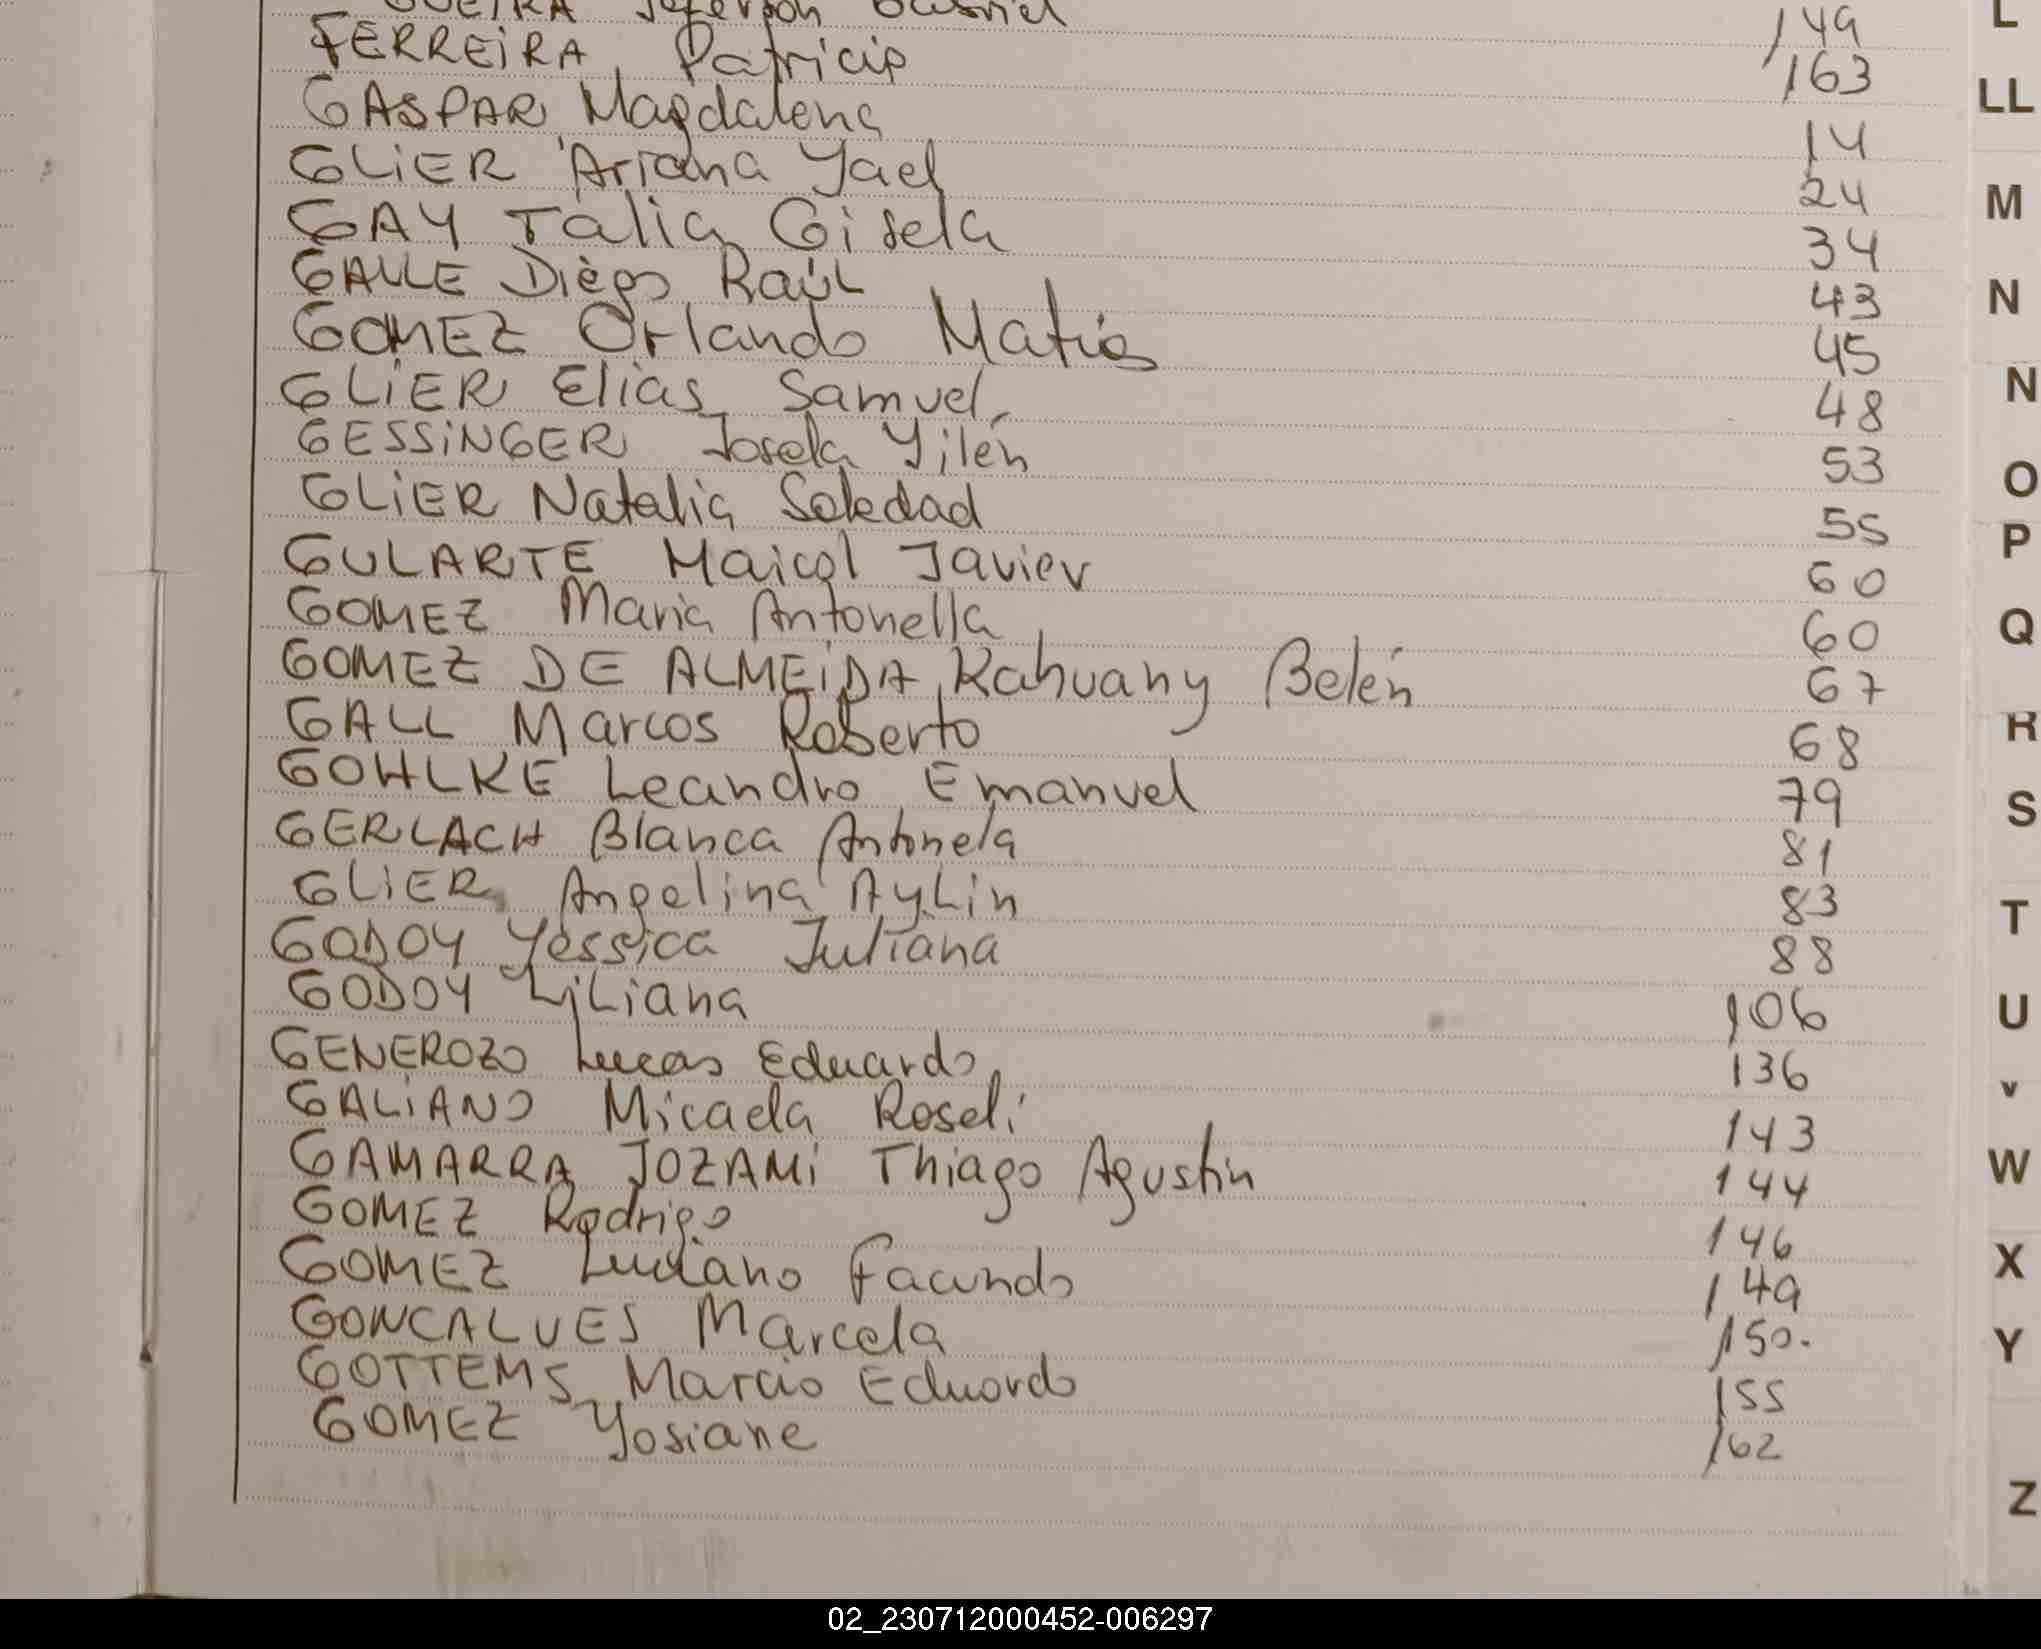 Jeferson Gabriel 149
FERREIRA Patricia 163
GASPAR Magdalena 14
GLIER Ariana Yael 24
GAY Talia Gisela 34
GALLE Diego Raúl 43
GOMEZ Orlando Matias 45
GLIER Elias Samuel 48
GESSINGER Josela Yilén 53
GLIER Natalia Soledad 55
GULARTE Maicol Javier 60
GOMEZ Maria Antonella 60
GOMEZ DE ALMEIDA Kahuany Belén 67
GALL Marcos Roberto 68
GOHLKE Leandro Emanuel 79
GERLACH Blanca Antonela 81
GLIER Angelina Aylin 83
GODOY Yessica Juliana 88
GODOY Liliana 106
GENEROZO Lucas Eduardo 136
GALIANO Micaela Roseli 143
GAMARRA JOZAMI Thiago Agustin 144
GOMEZ Rodrigo 146
GOMEZ Luciano Facundo 149
GONCALVES Marcela 150.
GOTTEMS Marcio Eduardo 155
GOMEZ Yosiane 162
L
LL
M
N
N
O
P
Q
R
S
T
U
v
W
X
Y
Z
02_230712000452-006297